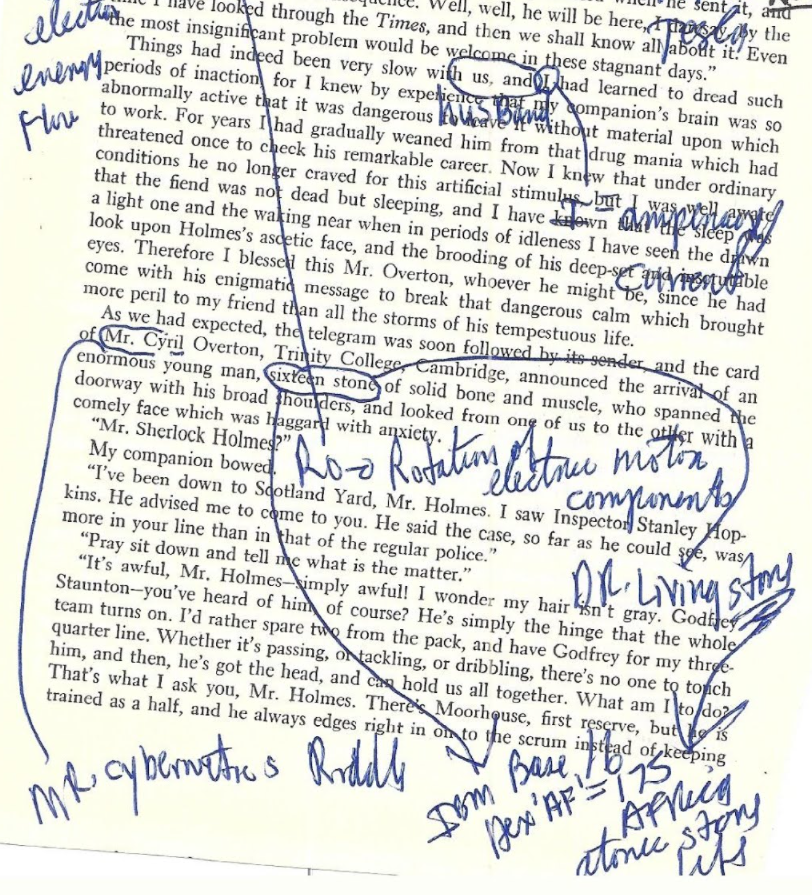 I have looked through the Times, and then we shall know all about it. Even
the most insignificant problem would be welcome in these stagnant days.”
Things had indeed been very slow with us, and I had learned to dread such
periods of inaction, for I knew by experience that my companion's brain was so
abnormally active that it was dangerous to leave it without material upon which
to work. For years I had gradually weaned him from that drug mania which had
threatened once to check his remarkable career. Now I knew that under ordinary
conditions he no longer craved for this artificial stimulus, but I was well aware
that the fiend was not dead but sleeping, and I have known that the sleep was
a light one and the waking near when in periods of idleness I have seen the drawn
look upon Holmes's ascetic face, and the brooding of his deep-set and inscrutable
eyes. Therefore I blessed this Mr. Overton, whoever he might be, since he had
come with his enigmatic message to break that dangerous calm which brought
more peril to my friend than all the storms of his tempestuous life.
As we had expected, the telegram was soon followed by its sender, and the card
of Mr. Cyril Overton, Trinity College, Cambridge, announced the arrival of an
enormous young man, sixteen stone of solid bone and muscle, who spanned the
doorway with his broad shoulders, and looked from one of us to the other with a
comely face which was haggard with anxiety.
“Mr. Sherlock Holmes?”
My companion bowed.
“I've been down to Scotland Yard, Mr. Holmes. I saw Inspector Stanley Hop-
kins. He advised me to come to you. He said the case, so far as he could see, was
more in your line than in that of the regular police.”
“Pray sit down and tell me what is the matter.”
“It's awful, Mr. Holmes—simply awful! I wonder my hair isn't gray. Godfrey
Staunton—you've heard of him, of course? He's simply the hinge that the whole
team turns on. I'd rather spare two from the pack, and have Godfrey for my three-
quarter line. Whether it's passing, or tackling, or dribbling, there's no one to touch
him, and then, he's got the head, and can hold us all together. What am I to do?
That's what I ask you, Mr. Holmes. There's Moorhouse, first reserve, but he is
trained as a half, and he always edges right in on to the scrum instead of keeping
energy
flow
husband
current
Rotation of
electric motor
components
DR. Livingstons
MR. cybernetics Riddle
Base 16
Hex 'AF' = 175
Africa